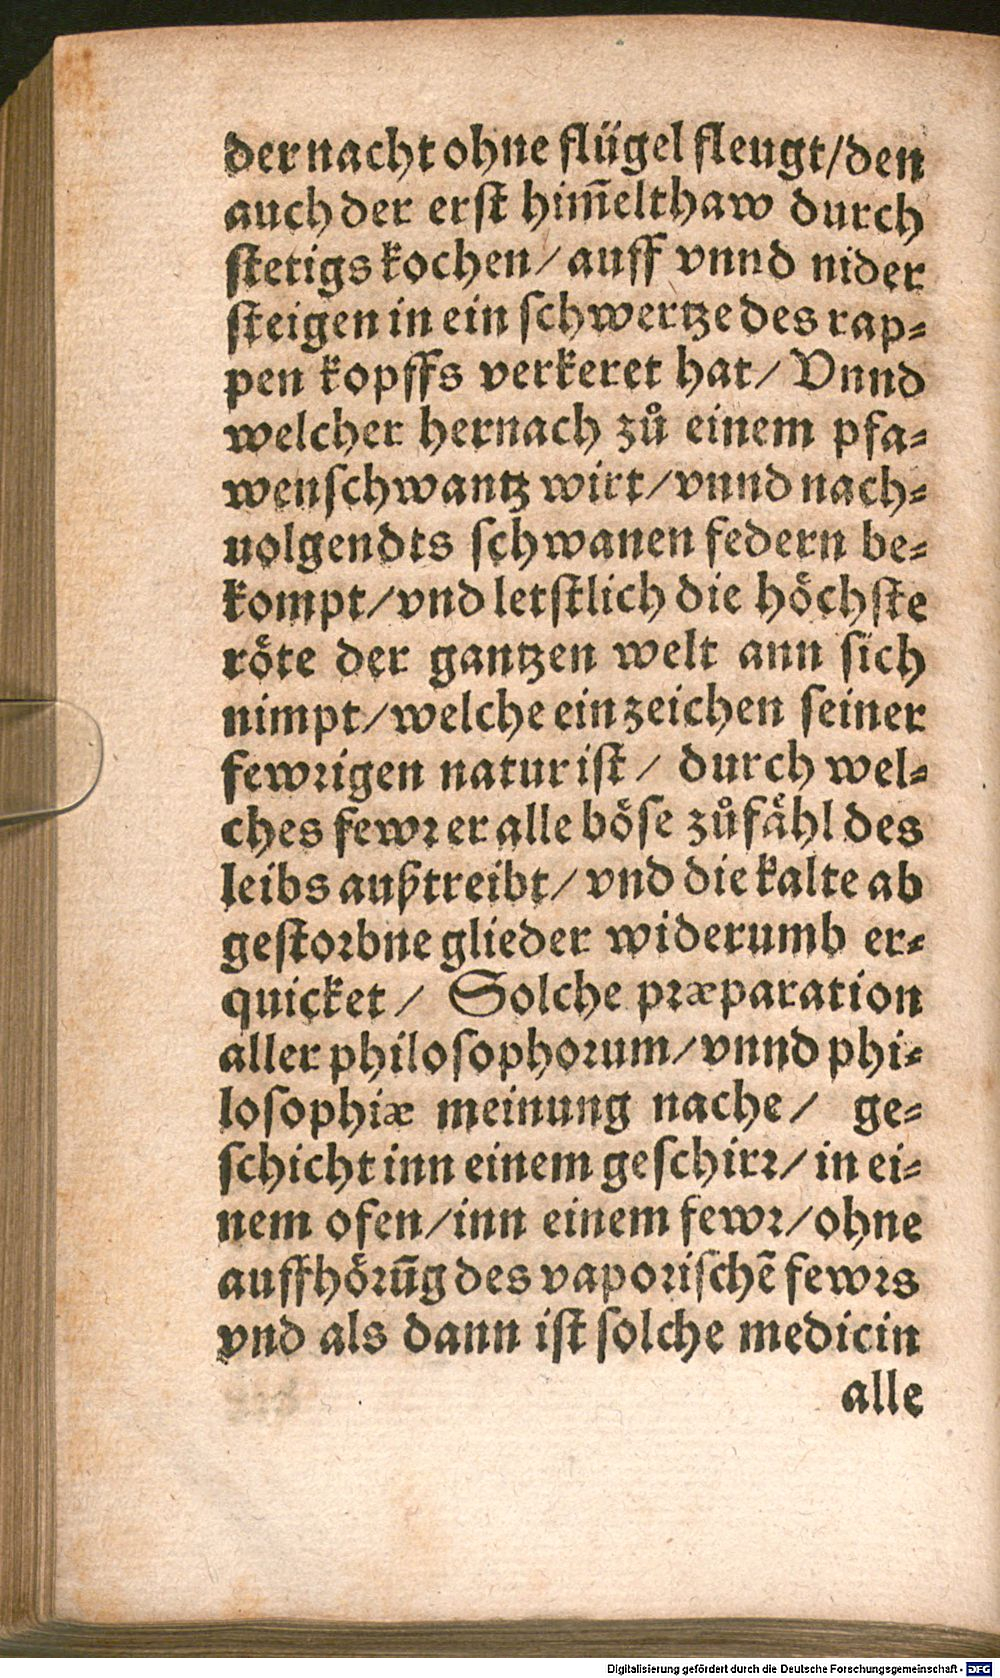 der nacht ohne flügel fleugt/den
auch der erst him̃elthaw durch
stetigs kochen/ auff vnnd nider
steigen in ein schwertze des rap⸗
pen kopffs verkeret hat/ Vnnd
welcher hernach zů einem pfa⸗
wenschwantz wirt/vnnd nach⸗
uolgendts schwanen federn be⸗
kompt/vnd letstlich die höchste
röte der gantzen welt ann sich
nimpt/welche ein zeichen seiner
fewrigen natur ist/ durch wel⸗
ches fewr er alle böse zůfähl des
leibs außtreibt/ vnd die kalte ab
gestorbne glieder widerumb er⸗
quicket/ Solche præparation
aller philosophorum/vnnd phi⸗
losophiæ meinung nache/ ge⸗
schicht inn einem geschirr/in ei⸗
nem ofen/inn einem fewr/ohne
auffhörũg des vaporischẽ fewrs
vnd als dann ist solche medicin
alle
Digitalisierung gefördert durch die Deutsche Forschungsgemeinschaft - DFG